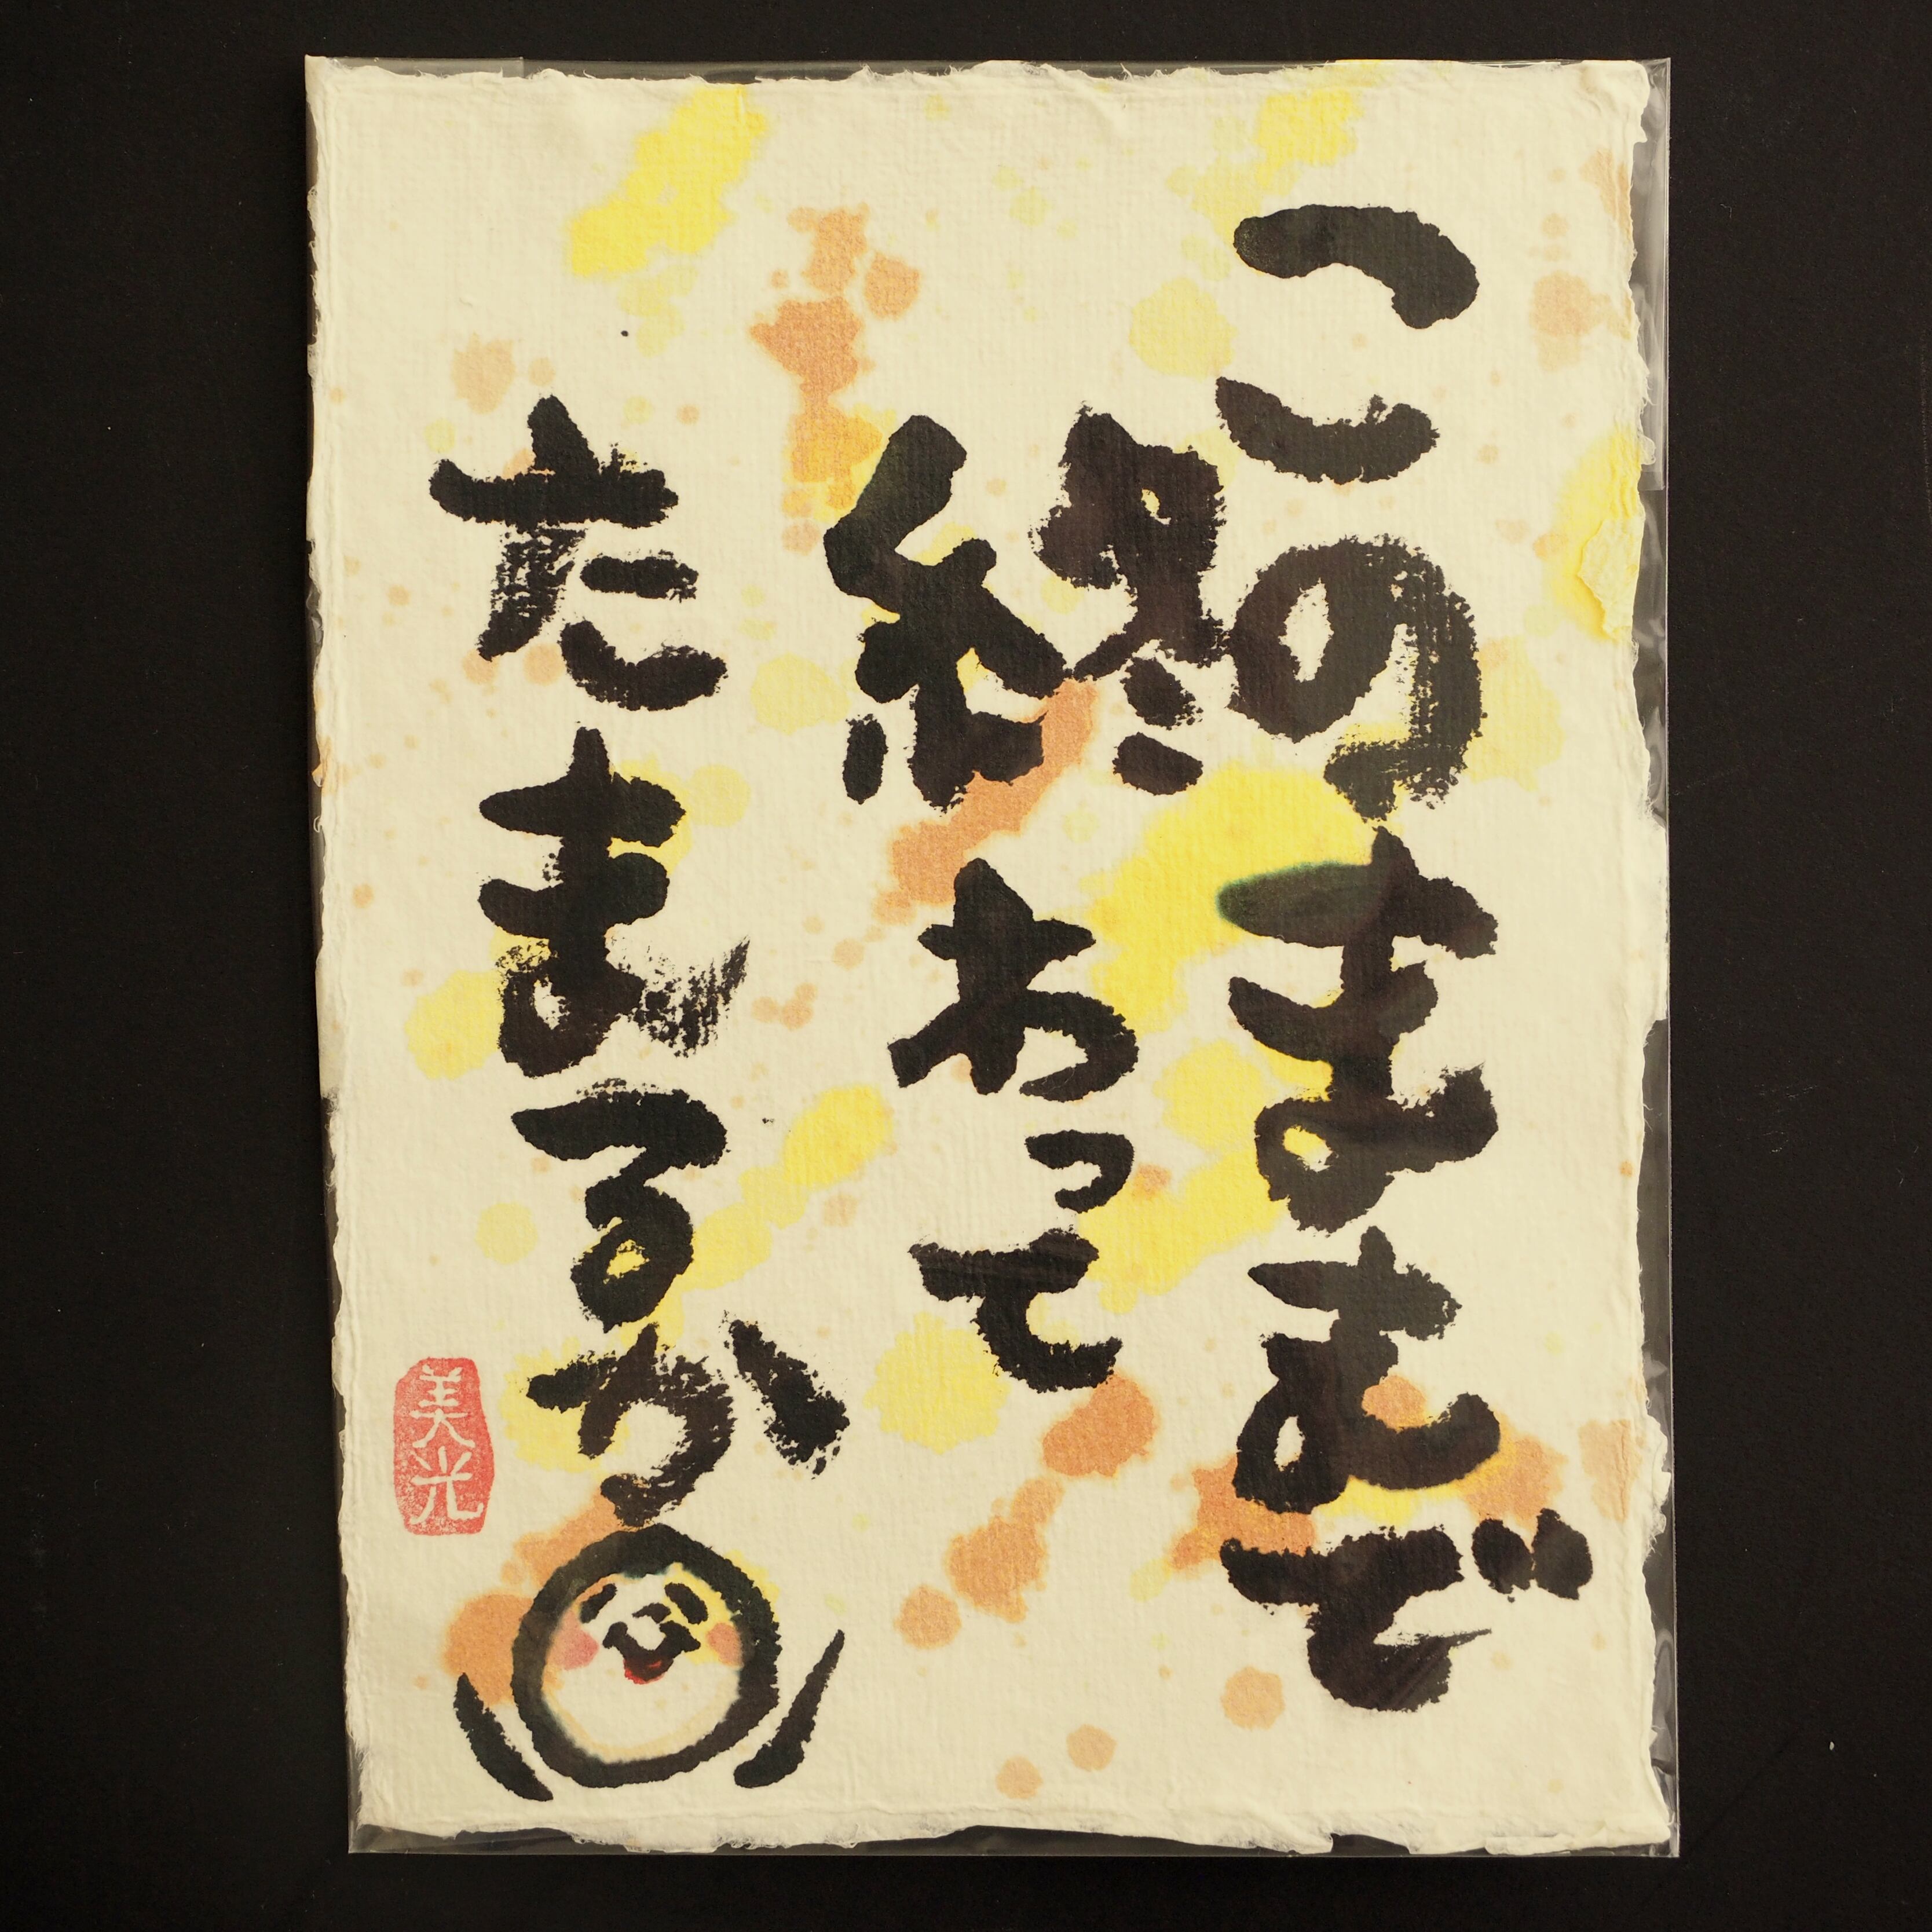 このままで
終わって
たまるか
美光